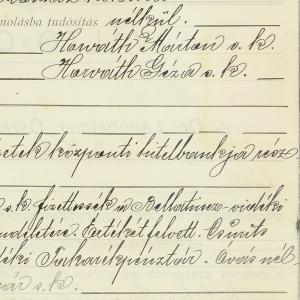 molásba tudósítás nélkül.
Horváth Márton s. k.
Horváth Géza s. k.
etek központi hitelbankja rész
s. k. fizettessék a Bellatincz-vidéki
rendeletére. Értékét felvett. Csurits
déki Takarékpénztár. Óvás nél-
s. k.